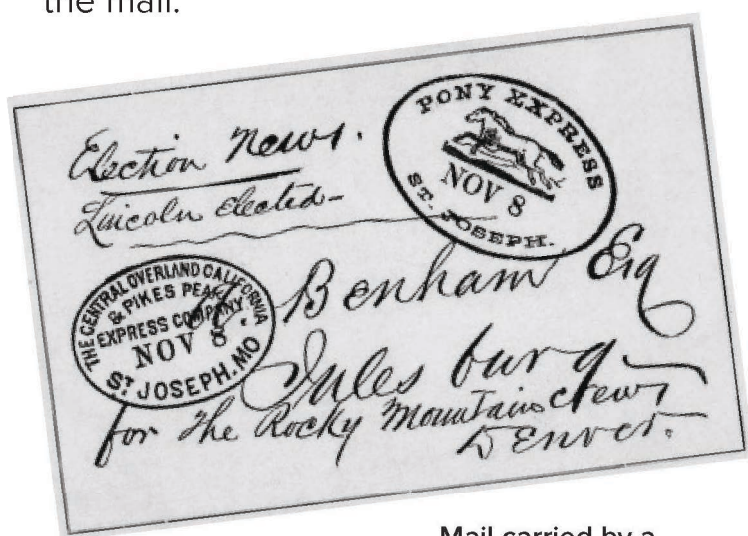 the mail.
Election News.
Lincoln elected-
PONY EXPRESS
NOV 8
ST. JOSEPH.
THE CENTRAL OVERLAND CALIFORNIA
& PIKES PEAK
EXPRESS COMPANY
NOV 8.
ST JOSEPH. MO
Benham Esq
Julesburg
for the Rocky Mountains
Denver.
Mail carried by a